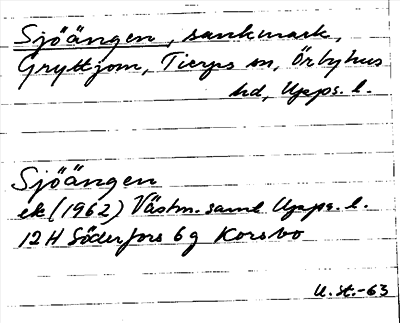 Sjöängen, sankmark,
Gryttjom, Tierps sn, Örbyhus
hd, Upps. l.
Sjöängen
ek (1962) Västm. samt Upps. l.
12H Söderfors 6g Korsbo
U. St. -63